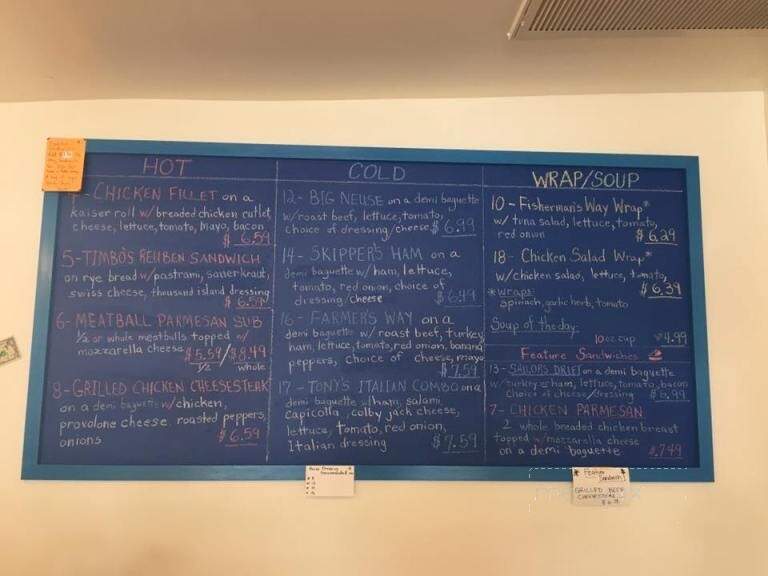 HOT
CHICKEN FILLET on a
kaiser roll w/breaded chicken cutlet,
cheese, lettuce, tomato, mayo, bacon
$ 6.59
5-TIMBO'S REUBEN SANDWICH
on rye bread w/pastrami, sauerkraut,
swiss cheese, thousand island dressing
$ 6.59
6- MEATBALL PARMESAN SUB
1/2 or whole meatballs topped w/
mozzarella cheese $5.59/$8.49
1/2 whole
8-GRILLED CHICKEN CHEESESTEAK
on a demi baguette w/chicken,
provolone cheese roasted peppers,
onions
$ 6.59
COLD
12- BIG NEUSE on a demi baguette
w/roast beef, lettuce, tomato,
choice of dressing/cheese $ 6.99
14- SKIPPER'S HAM on a
demi baguette w/ham, lettuce,
tomato, red onion, choice of
dressing/cheese $ 6.99
16- FARMER'S WAY on a
demi baguette w/ roast beef, turkey,
ham, lettuce, tomato, red onion, banana
peppers, choice of cheese, mayo
$ 7.59
17- TONY'S ITALIAN COMBO on a
demi baguette w/ham, salami
capicolla, colby jack cheese,
lettuce, tomato, red onion,
Italian dressing $ 7.59
WRAP/SOUP
10- Fisherman's Way Wrap*
w/ tuna salad, lettuce, tomato,
red onion $ 6.29
18- Chicken Salad Wrap*
w/chicken salad, lettuce, tomato,
$ 6.39
*wraps:
spinach, garlic herb, tomato
Soup of the day:
10 oz cup 4.99
Feature Sandwiches
13- SAILORS DRIFT on a demi baguette
w/turkey & ham, lettuce, tomato, bacon
choice of cheese/dressing $ 6.99
7- CHICKEN PARMESAN
2 whole breaded chicken breast
topped w/mozzarella cheese
on a demi baguette $7.49
* Feature *
Sandwich
GRILLED BEEF